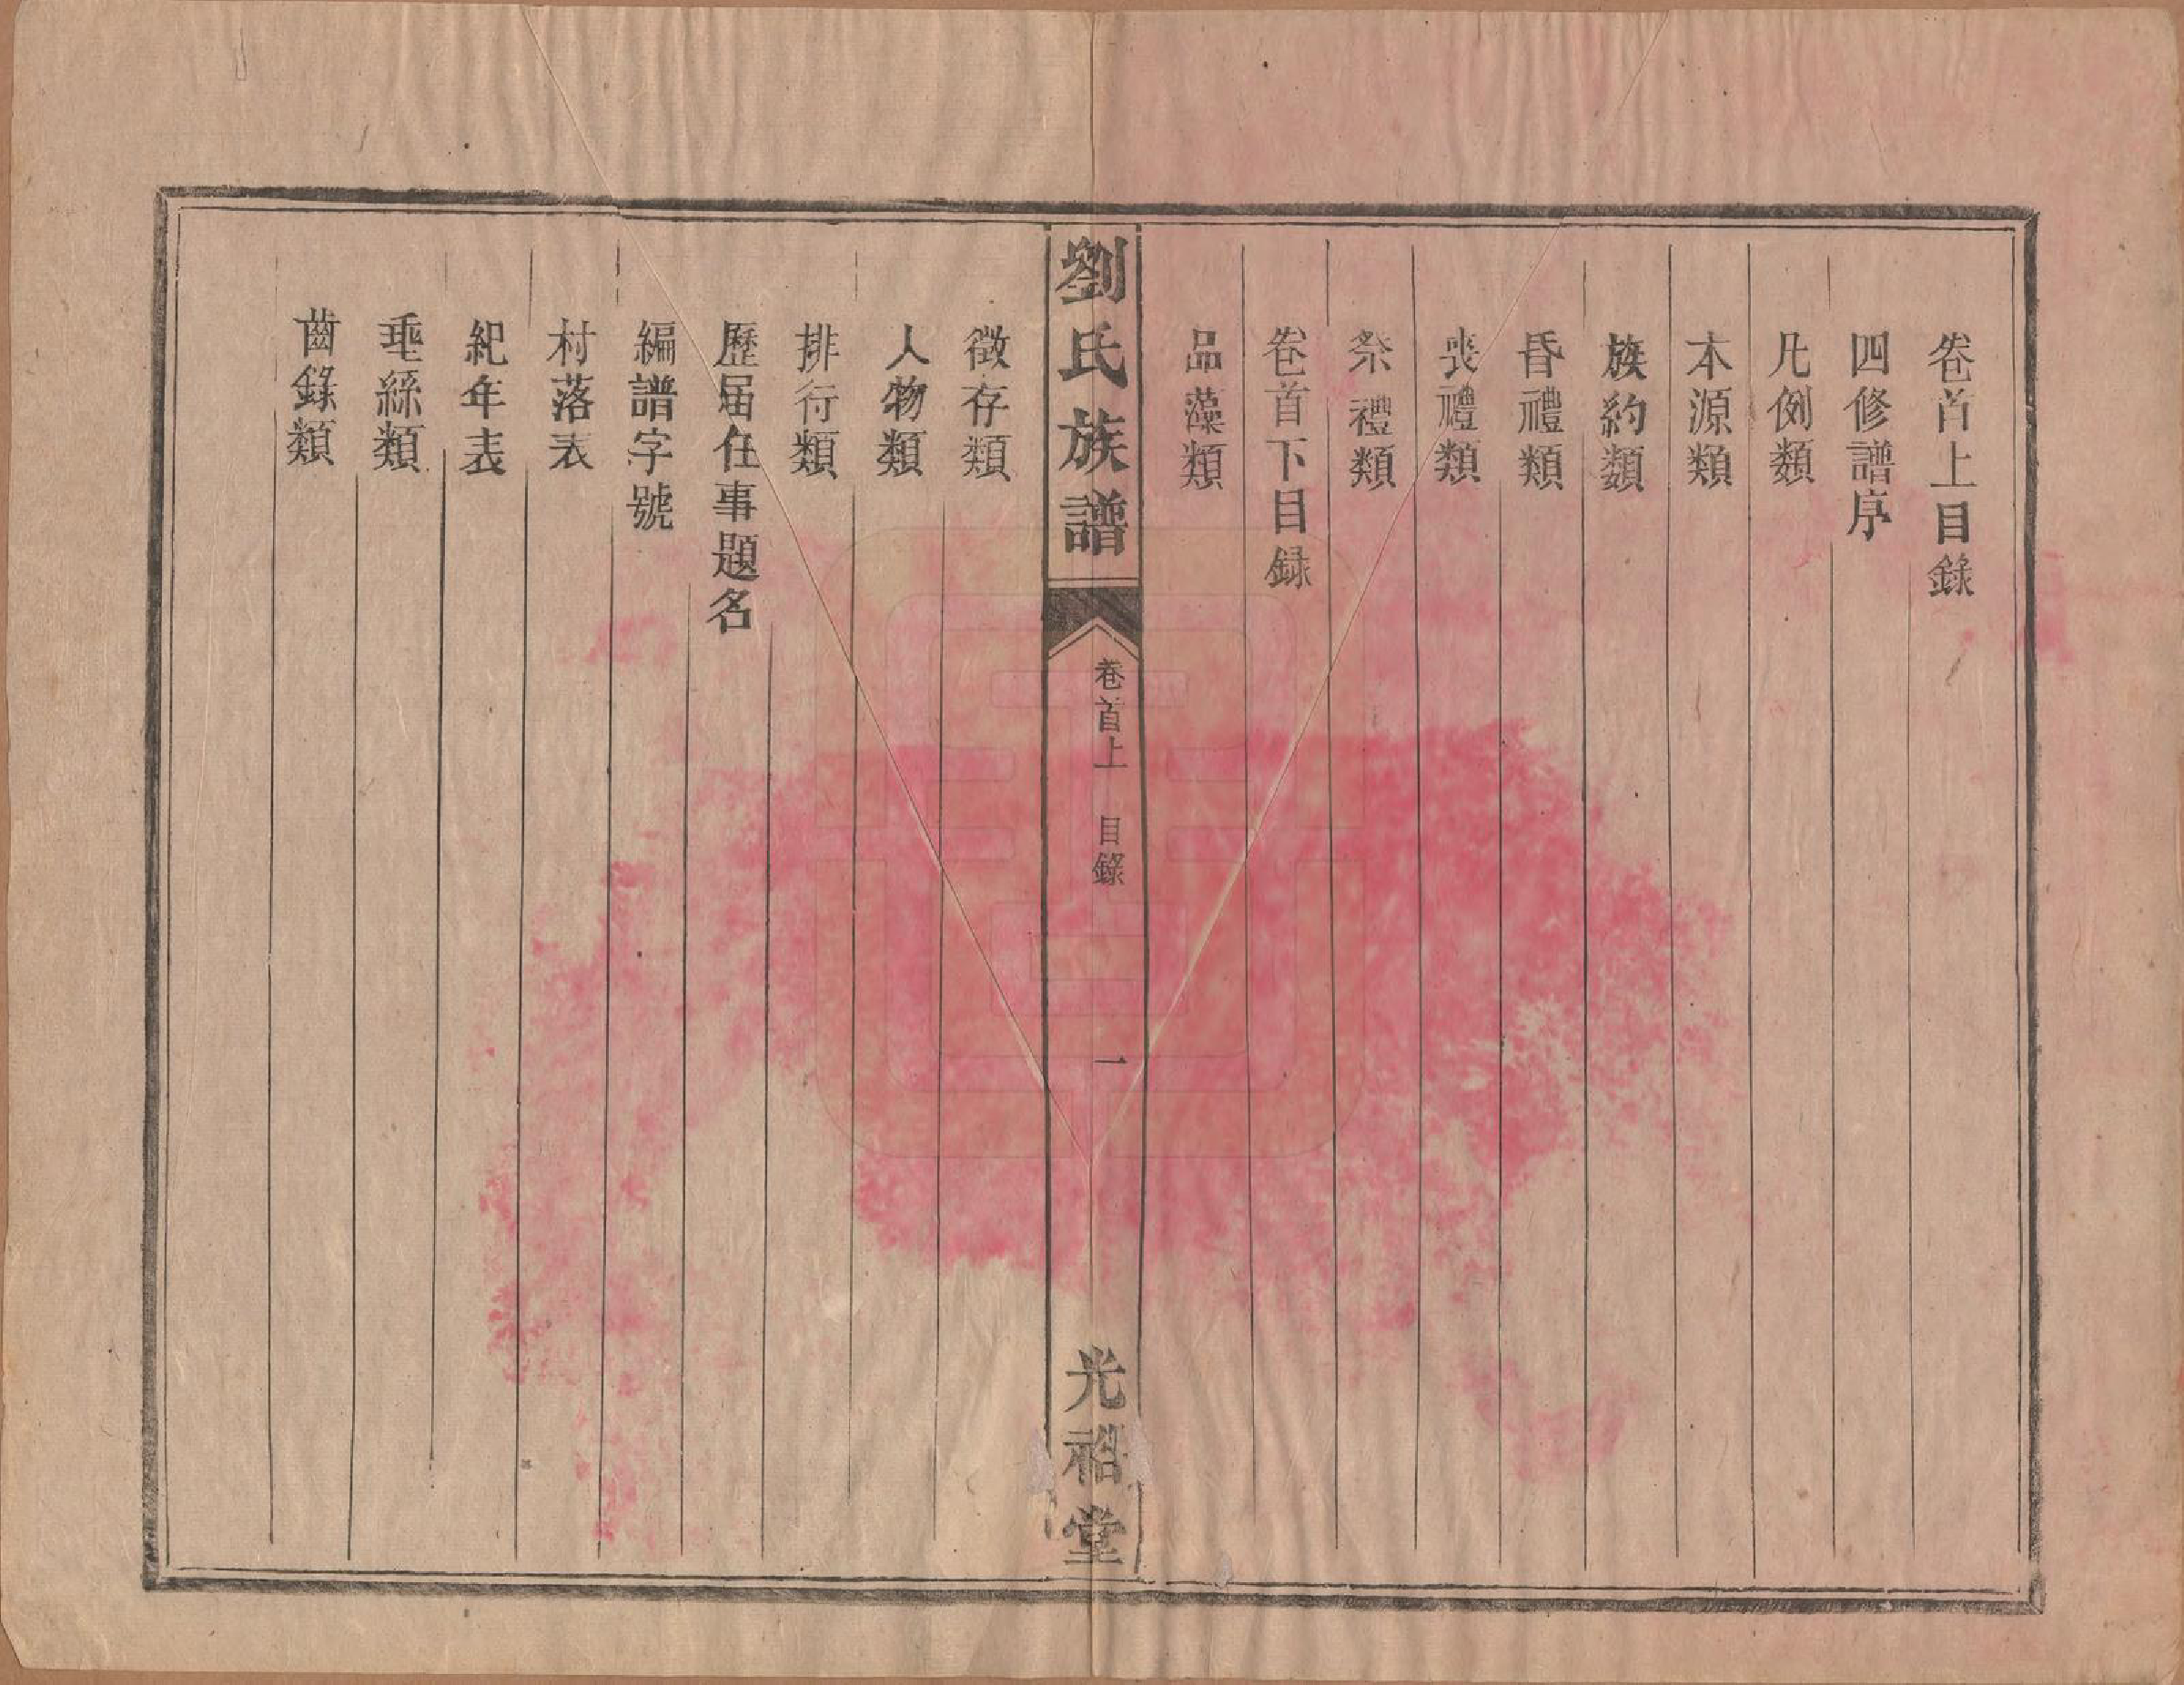 卷首上目錄
四修譜序
凡例類
本源類
族約類
昏禮類
喪禮類
祭禮類
卷首下目録
品藻類
劉氏族譜
卷首上 目錄
一
光裕堂
徵存類
人物類
排行類
歷届任事題名
編譜字號
村落表
紀年表
垂絲類
齒錄類